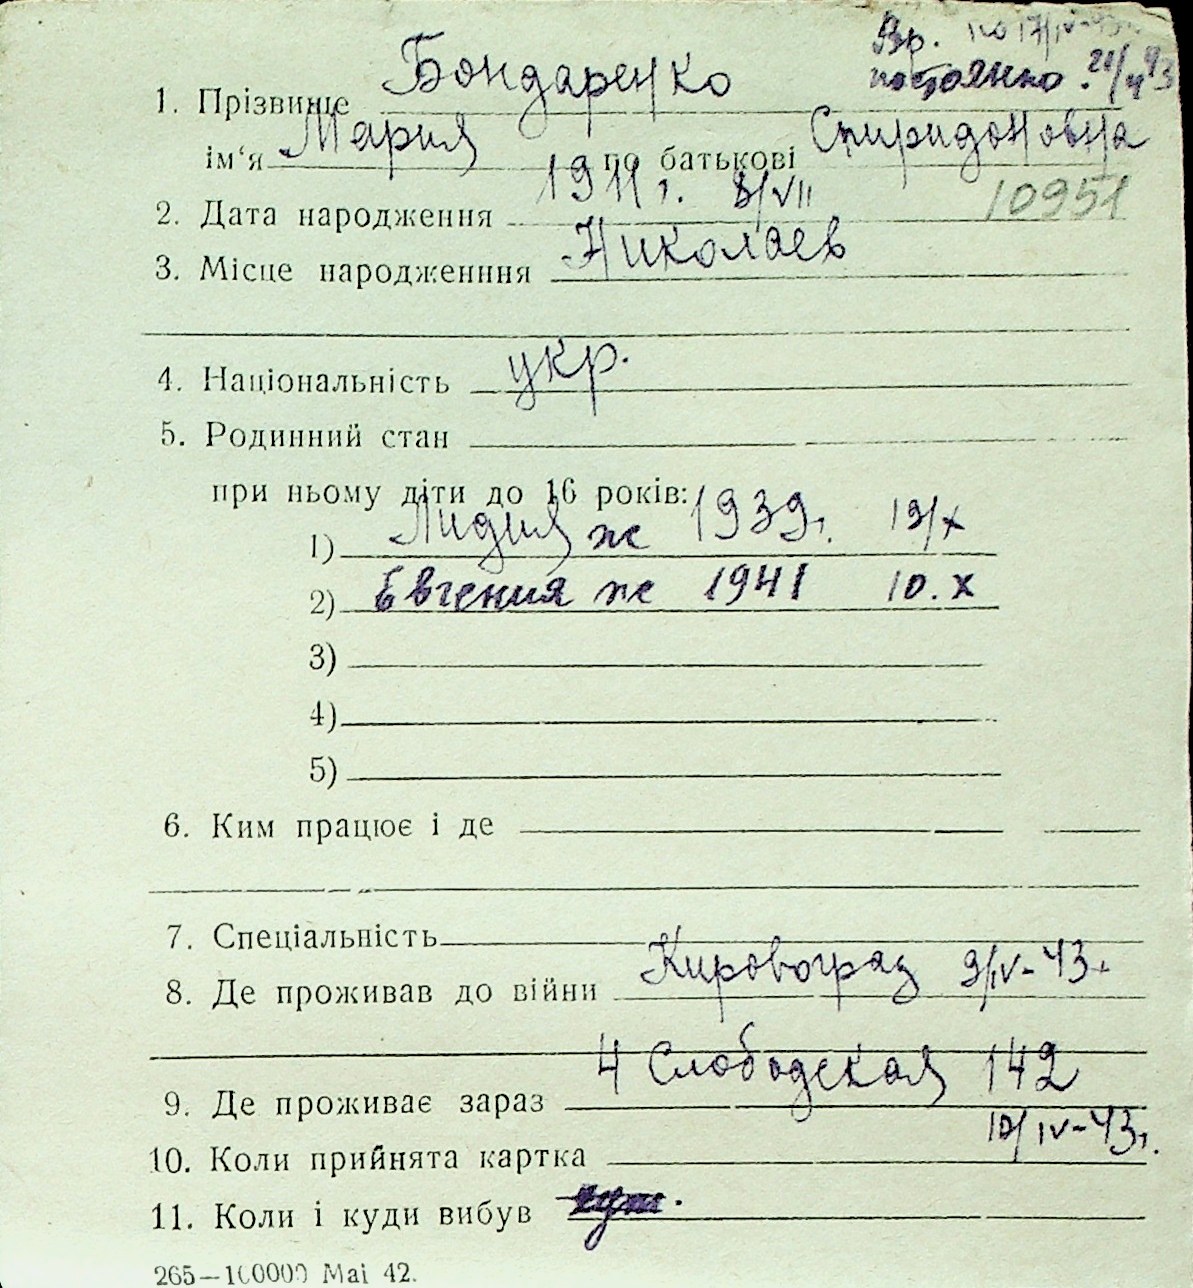 Вр. по 17/IV-43г.
постоянно. 21/4 43
1. Прізвище Бондаренко
ім'я Мария по батькові Спиридоновна
2. Дата народження 1911 г. 8/VII 10951
3. Місце народженння Николаев
4. Національність укр.
5. Родинний стан
при ньому діти до 16 років:
1) Лидия ж 1939г. 19/x
2) Евгения ж 1941 10.x
3)
4)
5)
6. Ким працює і де
7. Спеціальність
8. Де проживав до війни Кировоград 9/IV-43г.
9. Де проживає зараз 4 Слободская 142
10. Коли прийнята картка 10/IV-43г.
11. Коли і куди вибув
265—100000 Маі 42.